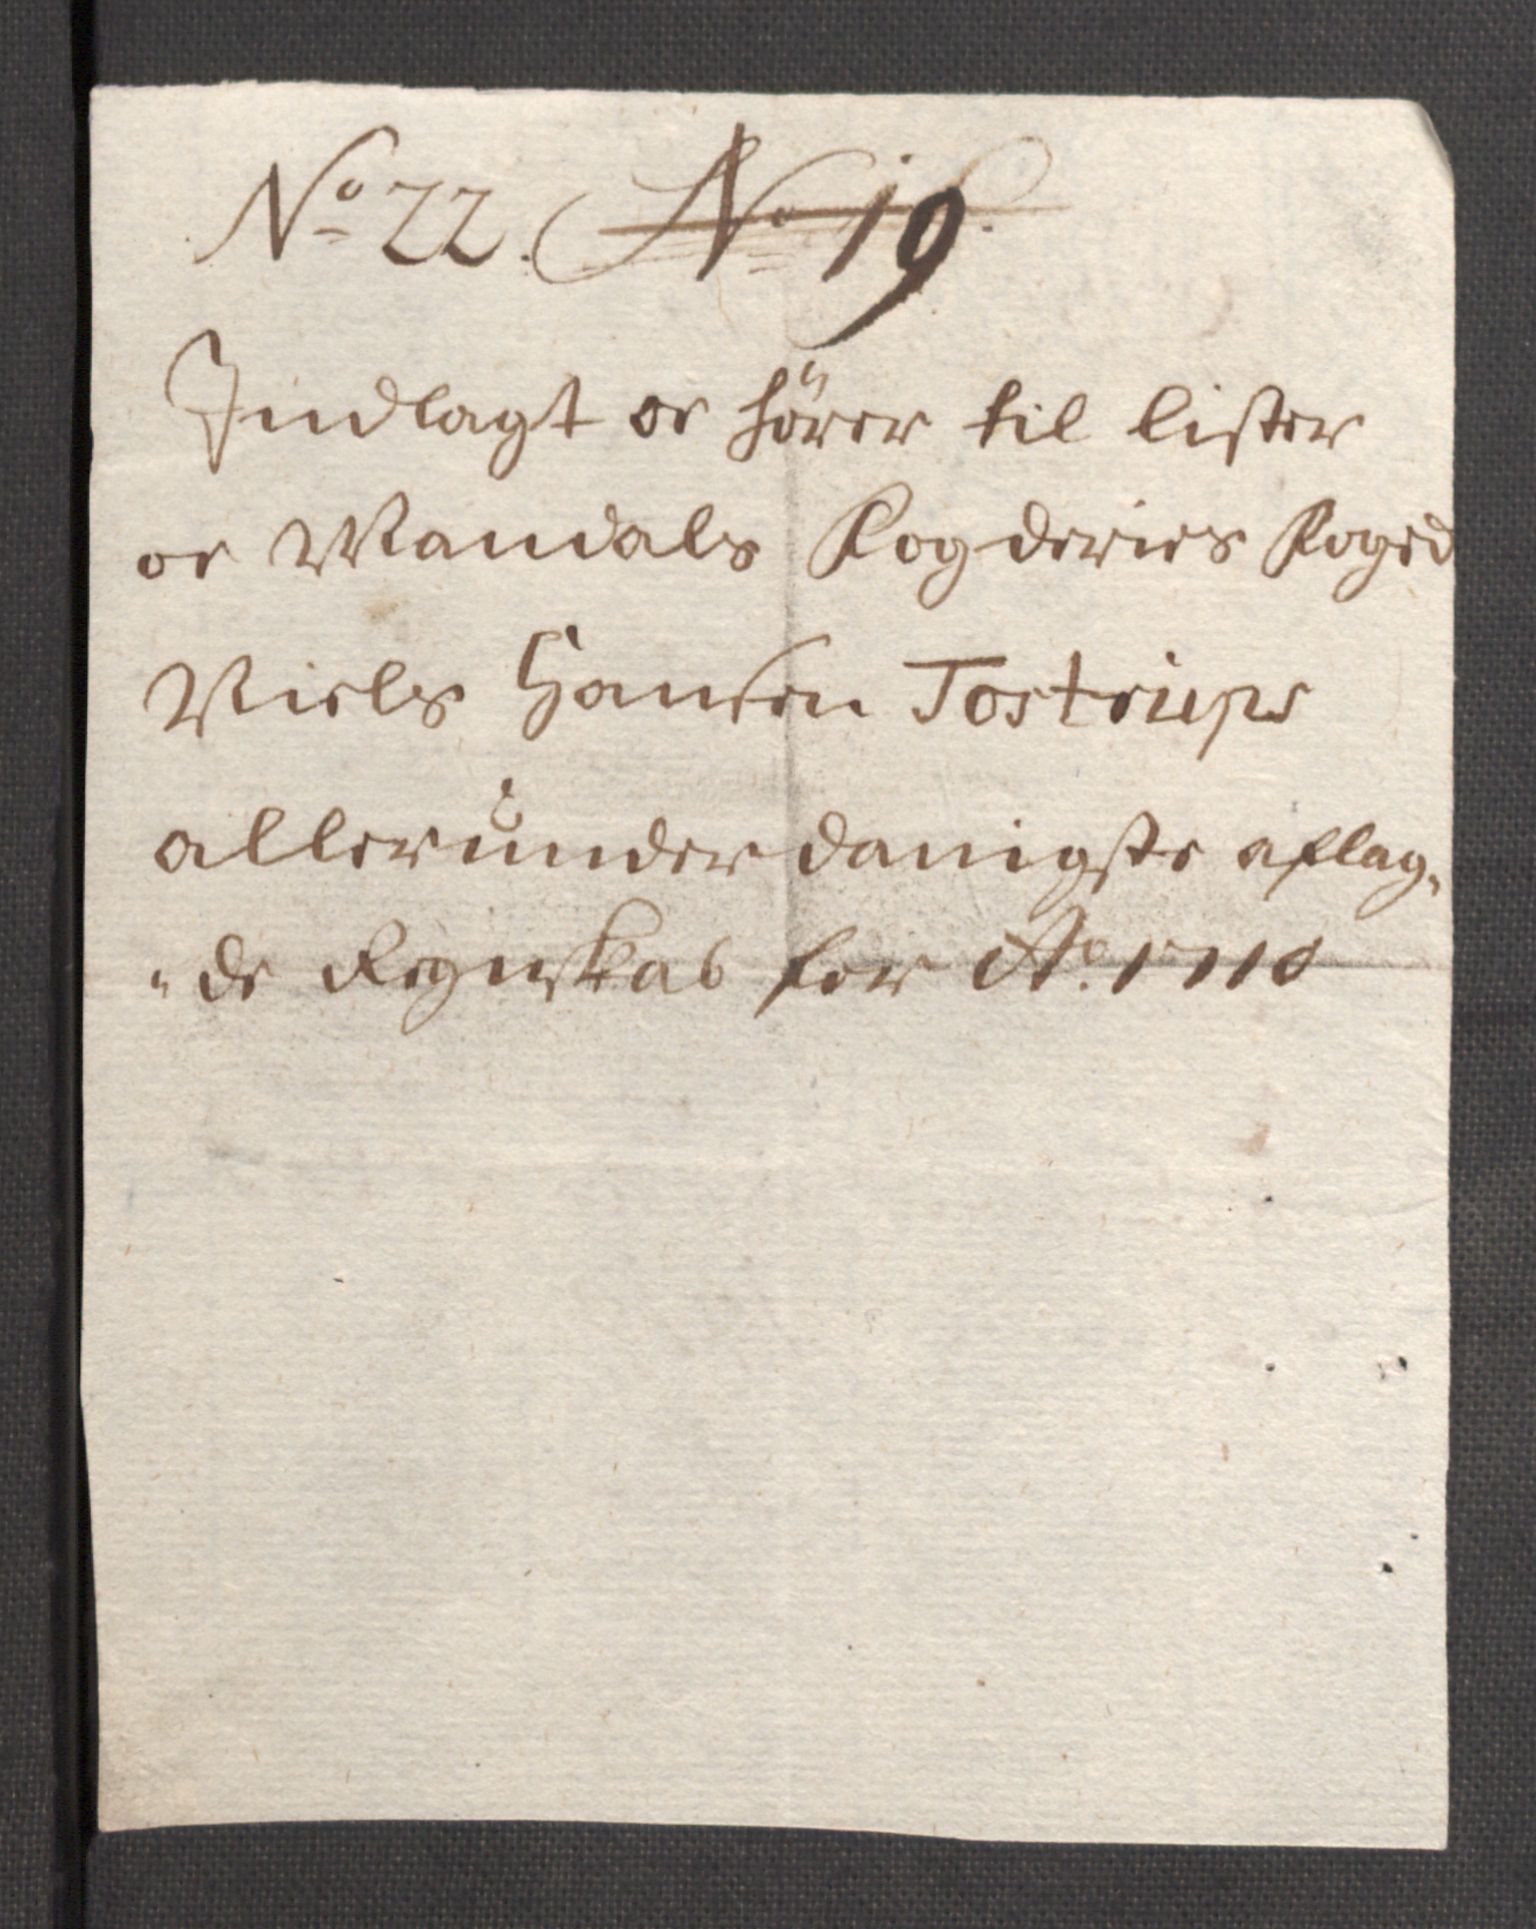 No 22. No 19.
Indlagt er hörer til lister
oe Mandals Fogderies Foged
Niels Hansen Tostrups
allerunderdanigste aflag„
„de Regnskab for Ao. 1710